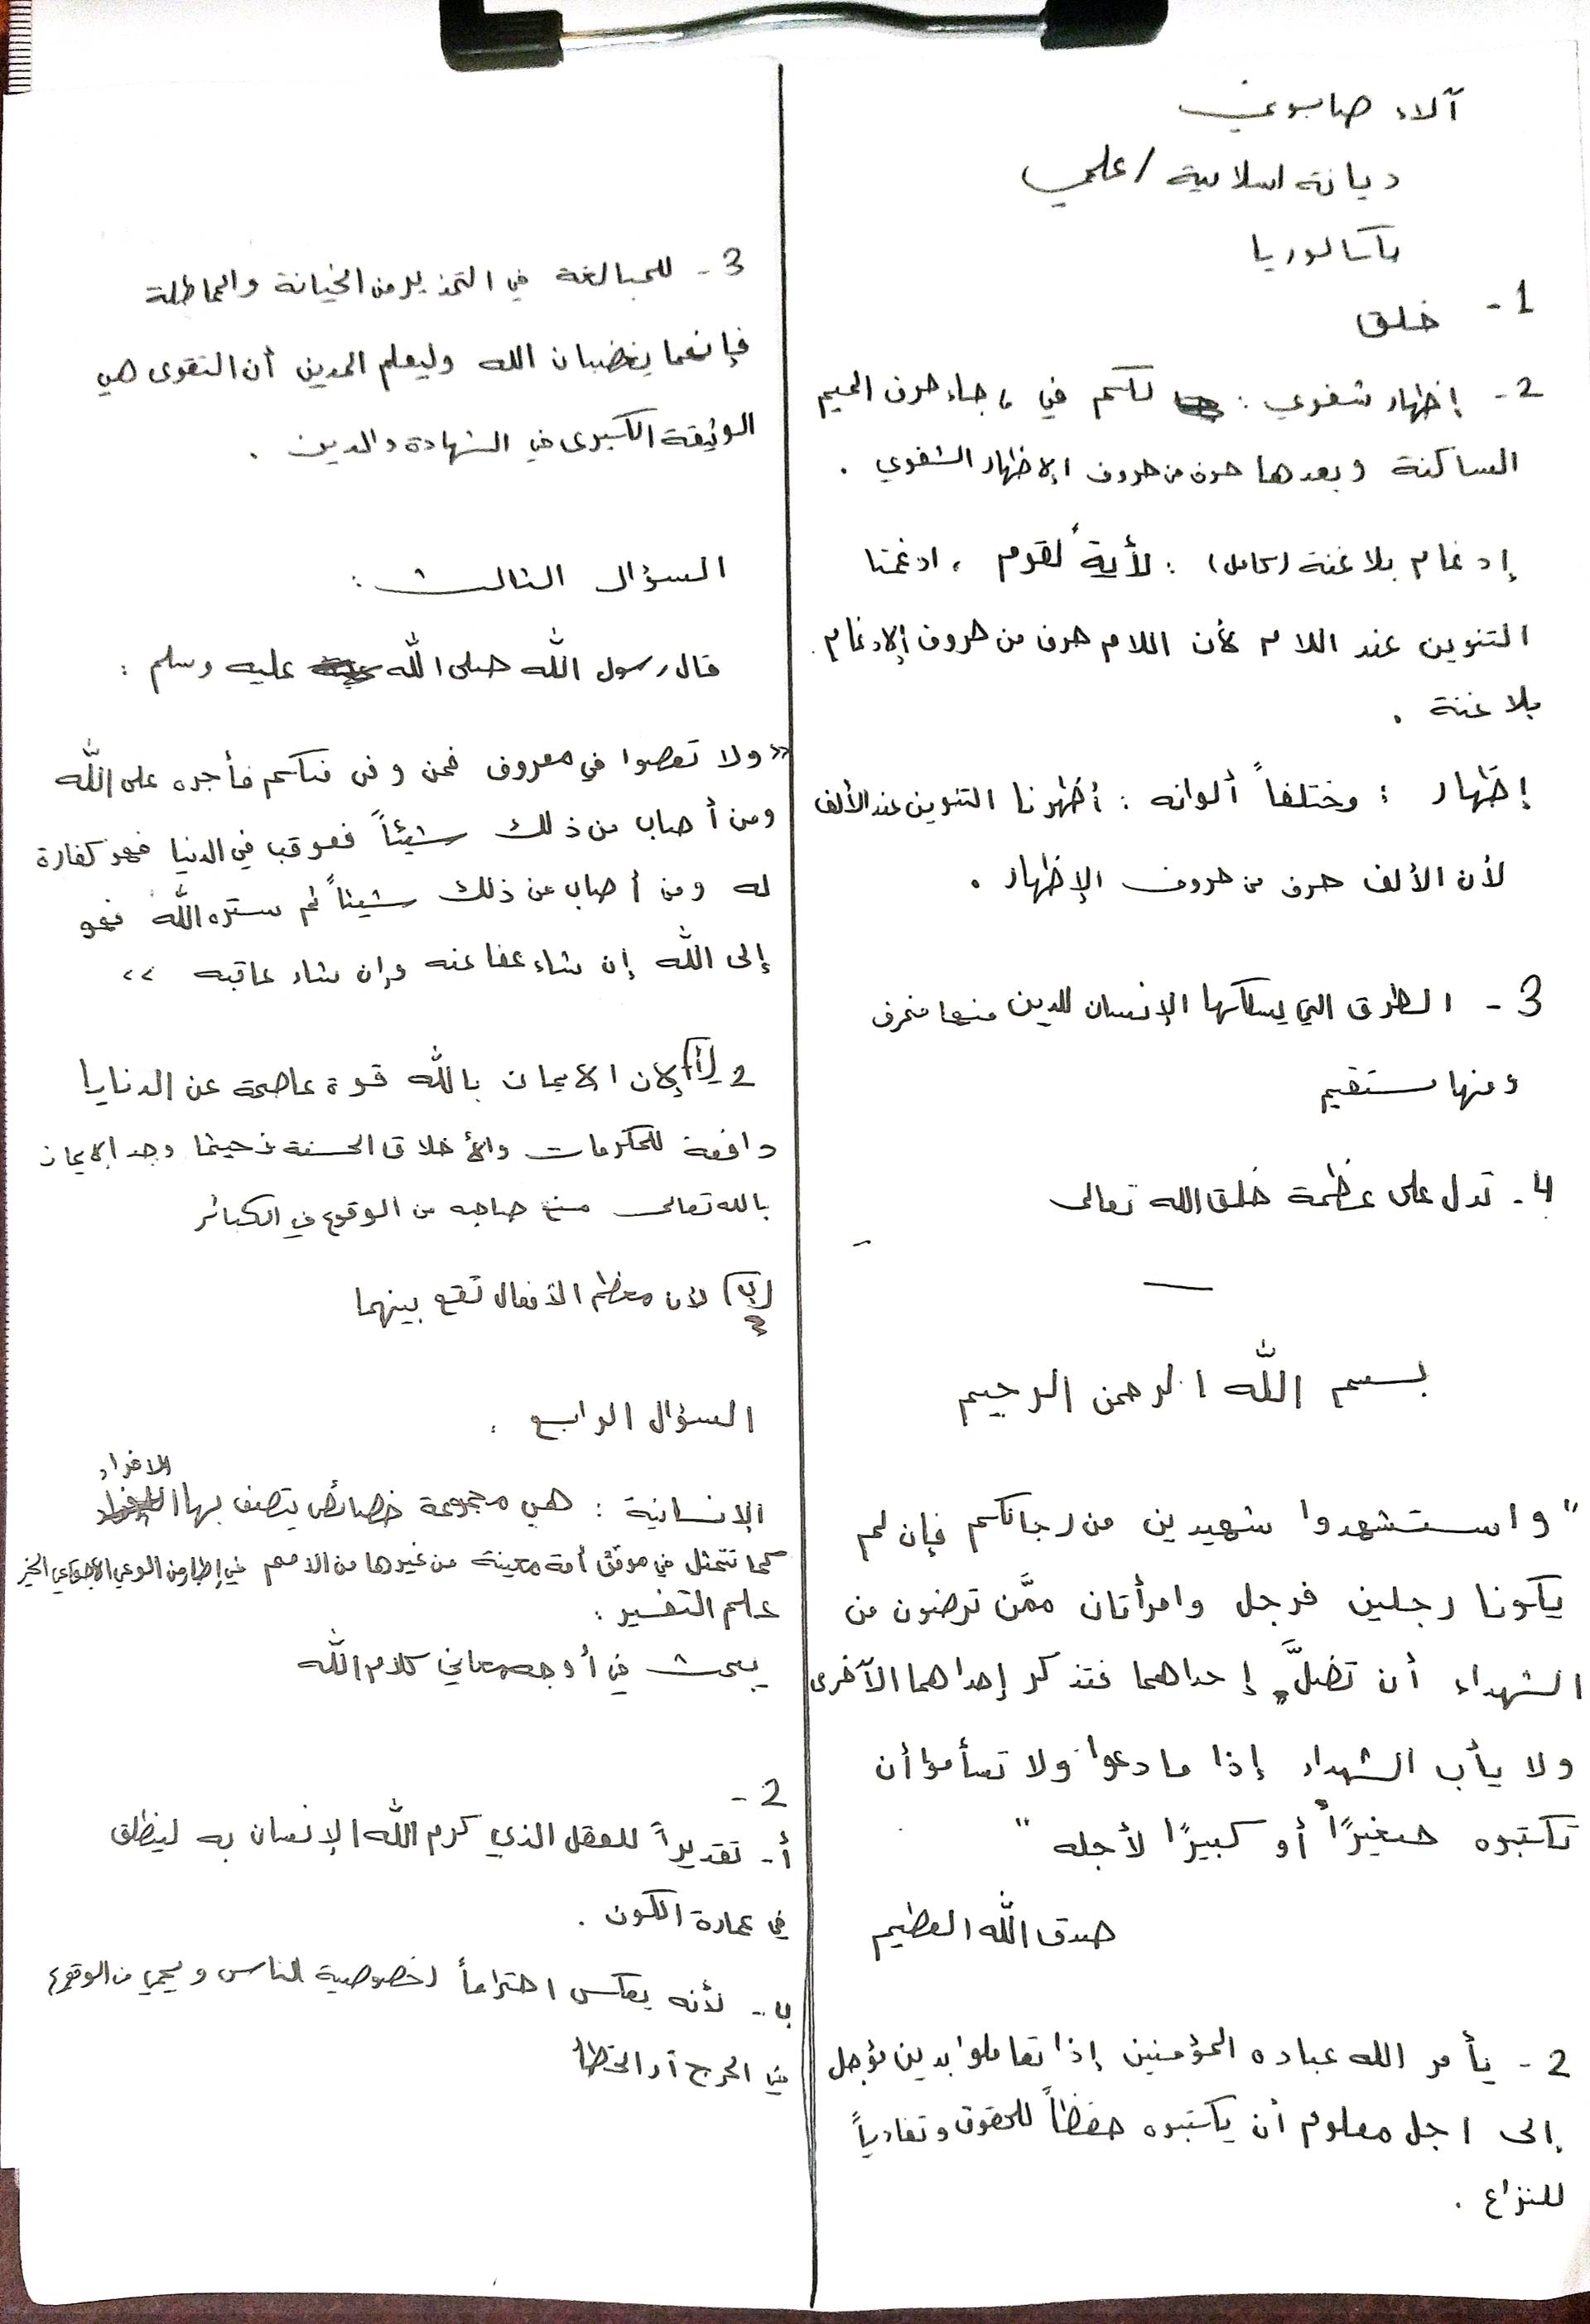 آلاء صابوني
ديانة اسلامية / علمي
باكالوريا
1 - خلق
2 - إظهار شفوي : لكم في ، جاء حرف الميم
الساكنة وبعدها حرف من حروف الإظهار الشفوي .
إدغام بلا غنة (كامل) : لأيةً لقوم ، ادغمنا
التنوين عند اللام لأن اللام حرف من حروف الإدغام
بلا غنة .
إظهار : مختلفاً ألوانه : أظهرنا التنوين عند الألف
لأن الألف حرف من حروف الإظهار .
3 - الطرق التي يسلكها الإنسان للدين منها منحرف
ومنها مستقيم
4 - تدل على عظمة خلق الله تعالى
بسم الله الرحمن الرحيم
" واستشهدوا شهيدين من رجالكم فإن لم
يكونا رجلين فرجل وامرأتان ممَّن ترضون من
الشهداء أن تضلَّ إحداهما فتذكر إحداهما الآخرى
ولا يأب الشهداء إذا ما دعوا ولا تسأموا أن
تكتبوه صغيرًا أو كبيرًا لأجله "
صدق الله العظيم
2 - يأمر الله عباده المؤمنين إذا تعاملوا بدين مؤجل
إلى اجل معلوم أن يكتبوه حفظاً للحقوق وتفادياً
للنزاع .
3 - للمبالغة في التحذير من الخيانة والمماطلة
فإنهما يغضبان الله وليعلم المدين أن التقوى هي
الوثيقة الكبرى في الشهادة والدين .
السؤال الثالث :
قال رسول الله صلى الله عليه وسلم :
« ولا تعصوا في معروف فمن وفى منكم فأجره على الله
ومن أصاب من ذلك شيئاً فعوقب في الدنيا فهو كفارة
له ومن أصاب من ذلك شيئاً ثم ستره الله فهو
إلى الله إن شاء عفا عنه وإن شاء عاقبه »
2 (أ) لان الايمان بالله قوة عاصمة عن الدنايا
دافعة للمكرمات والأخلاق الحسنة فحيثما وجد الايمان
بالله تعالى منع صاحبه من الوقوع في الكبائر
(ب) لأن معظم الأفعال تقع بينهما
السؤال الرابع :
الإنسانية : هي مجموعة خصائص يتصف بها الافراد
كما تتمثل في موقف أمة معينة من غيرها من الامم في إطار من الوعي الاجتماعي الخير
علم التفسير :
يبحث في أوجه معاني كلام الله
2 -
أ- تقديراً للعقل الذي كرم الله الإنسان به لينطلق
في عمارة الكون .
ب- لأنه يعكس احتراماً لخصوصية الناس ويحمي من الوقوع
في الحرج أو الخطأ